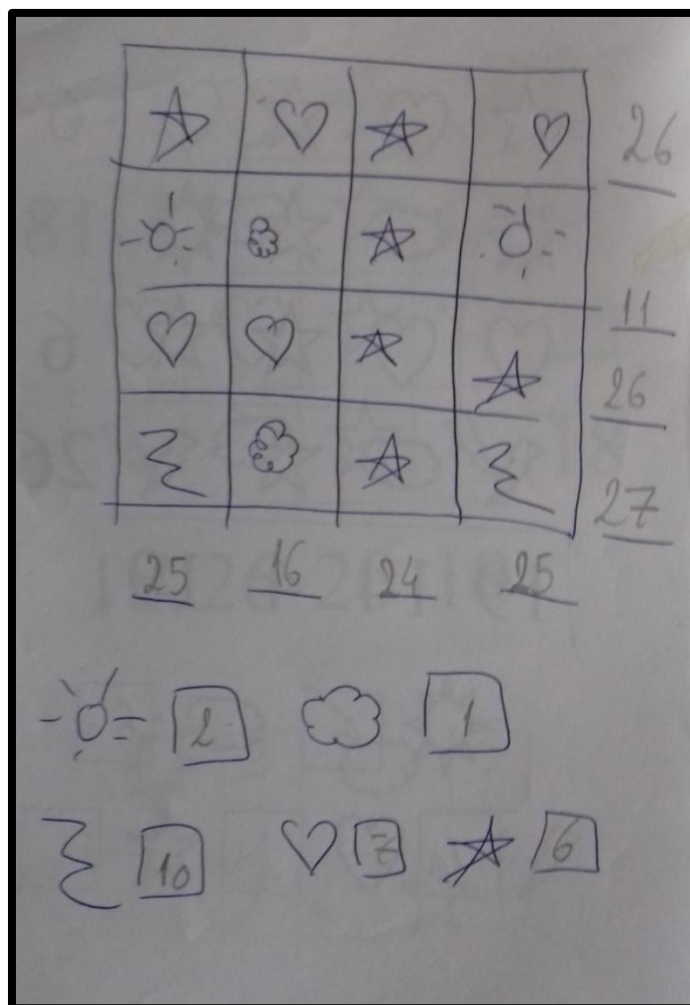 26
11
26
27
25 16 24 25
2 1
10 7 6